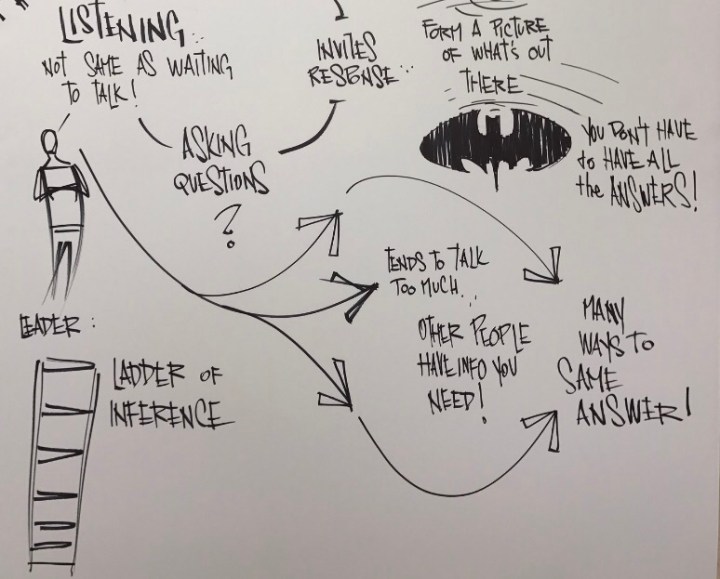 LISTENING..
NOT SAME AS WAITING
TO TALK!
INVITES
RESPONSE...
FORM A PICTURE
OF WHAT'S OUT
THERE
ASKING
QUESTIONS
?
YOU DON'T HAVE
to HAVE ALL
the ANSWERS!
TENDS TO TALK
TOO MUCH...
OTHER PEOPLE
HAVE INFO YOU
NEED!
MANY
WAYS TO
SAME
ANSWER!
LEADER:
LADDER OF
INFERENCE